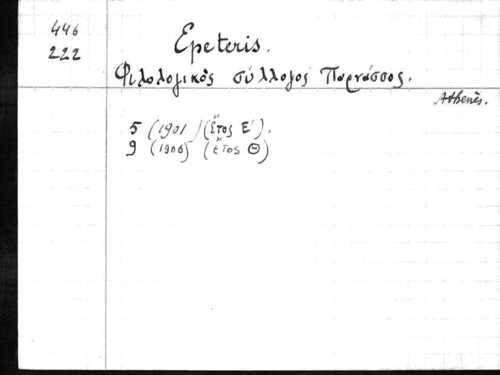 446
222
Epeteris.
Φιλολογικὸς σύλλογος Παρνάσσος.
Athenês.
5 (1901) (ἔτος Ε').
9 (1906) (ἔτος Θ)